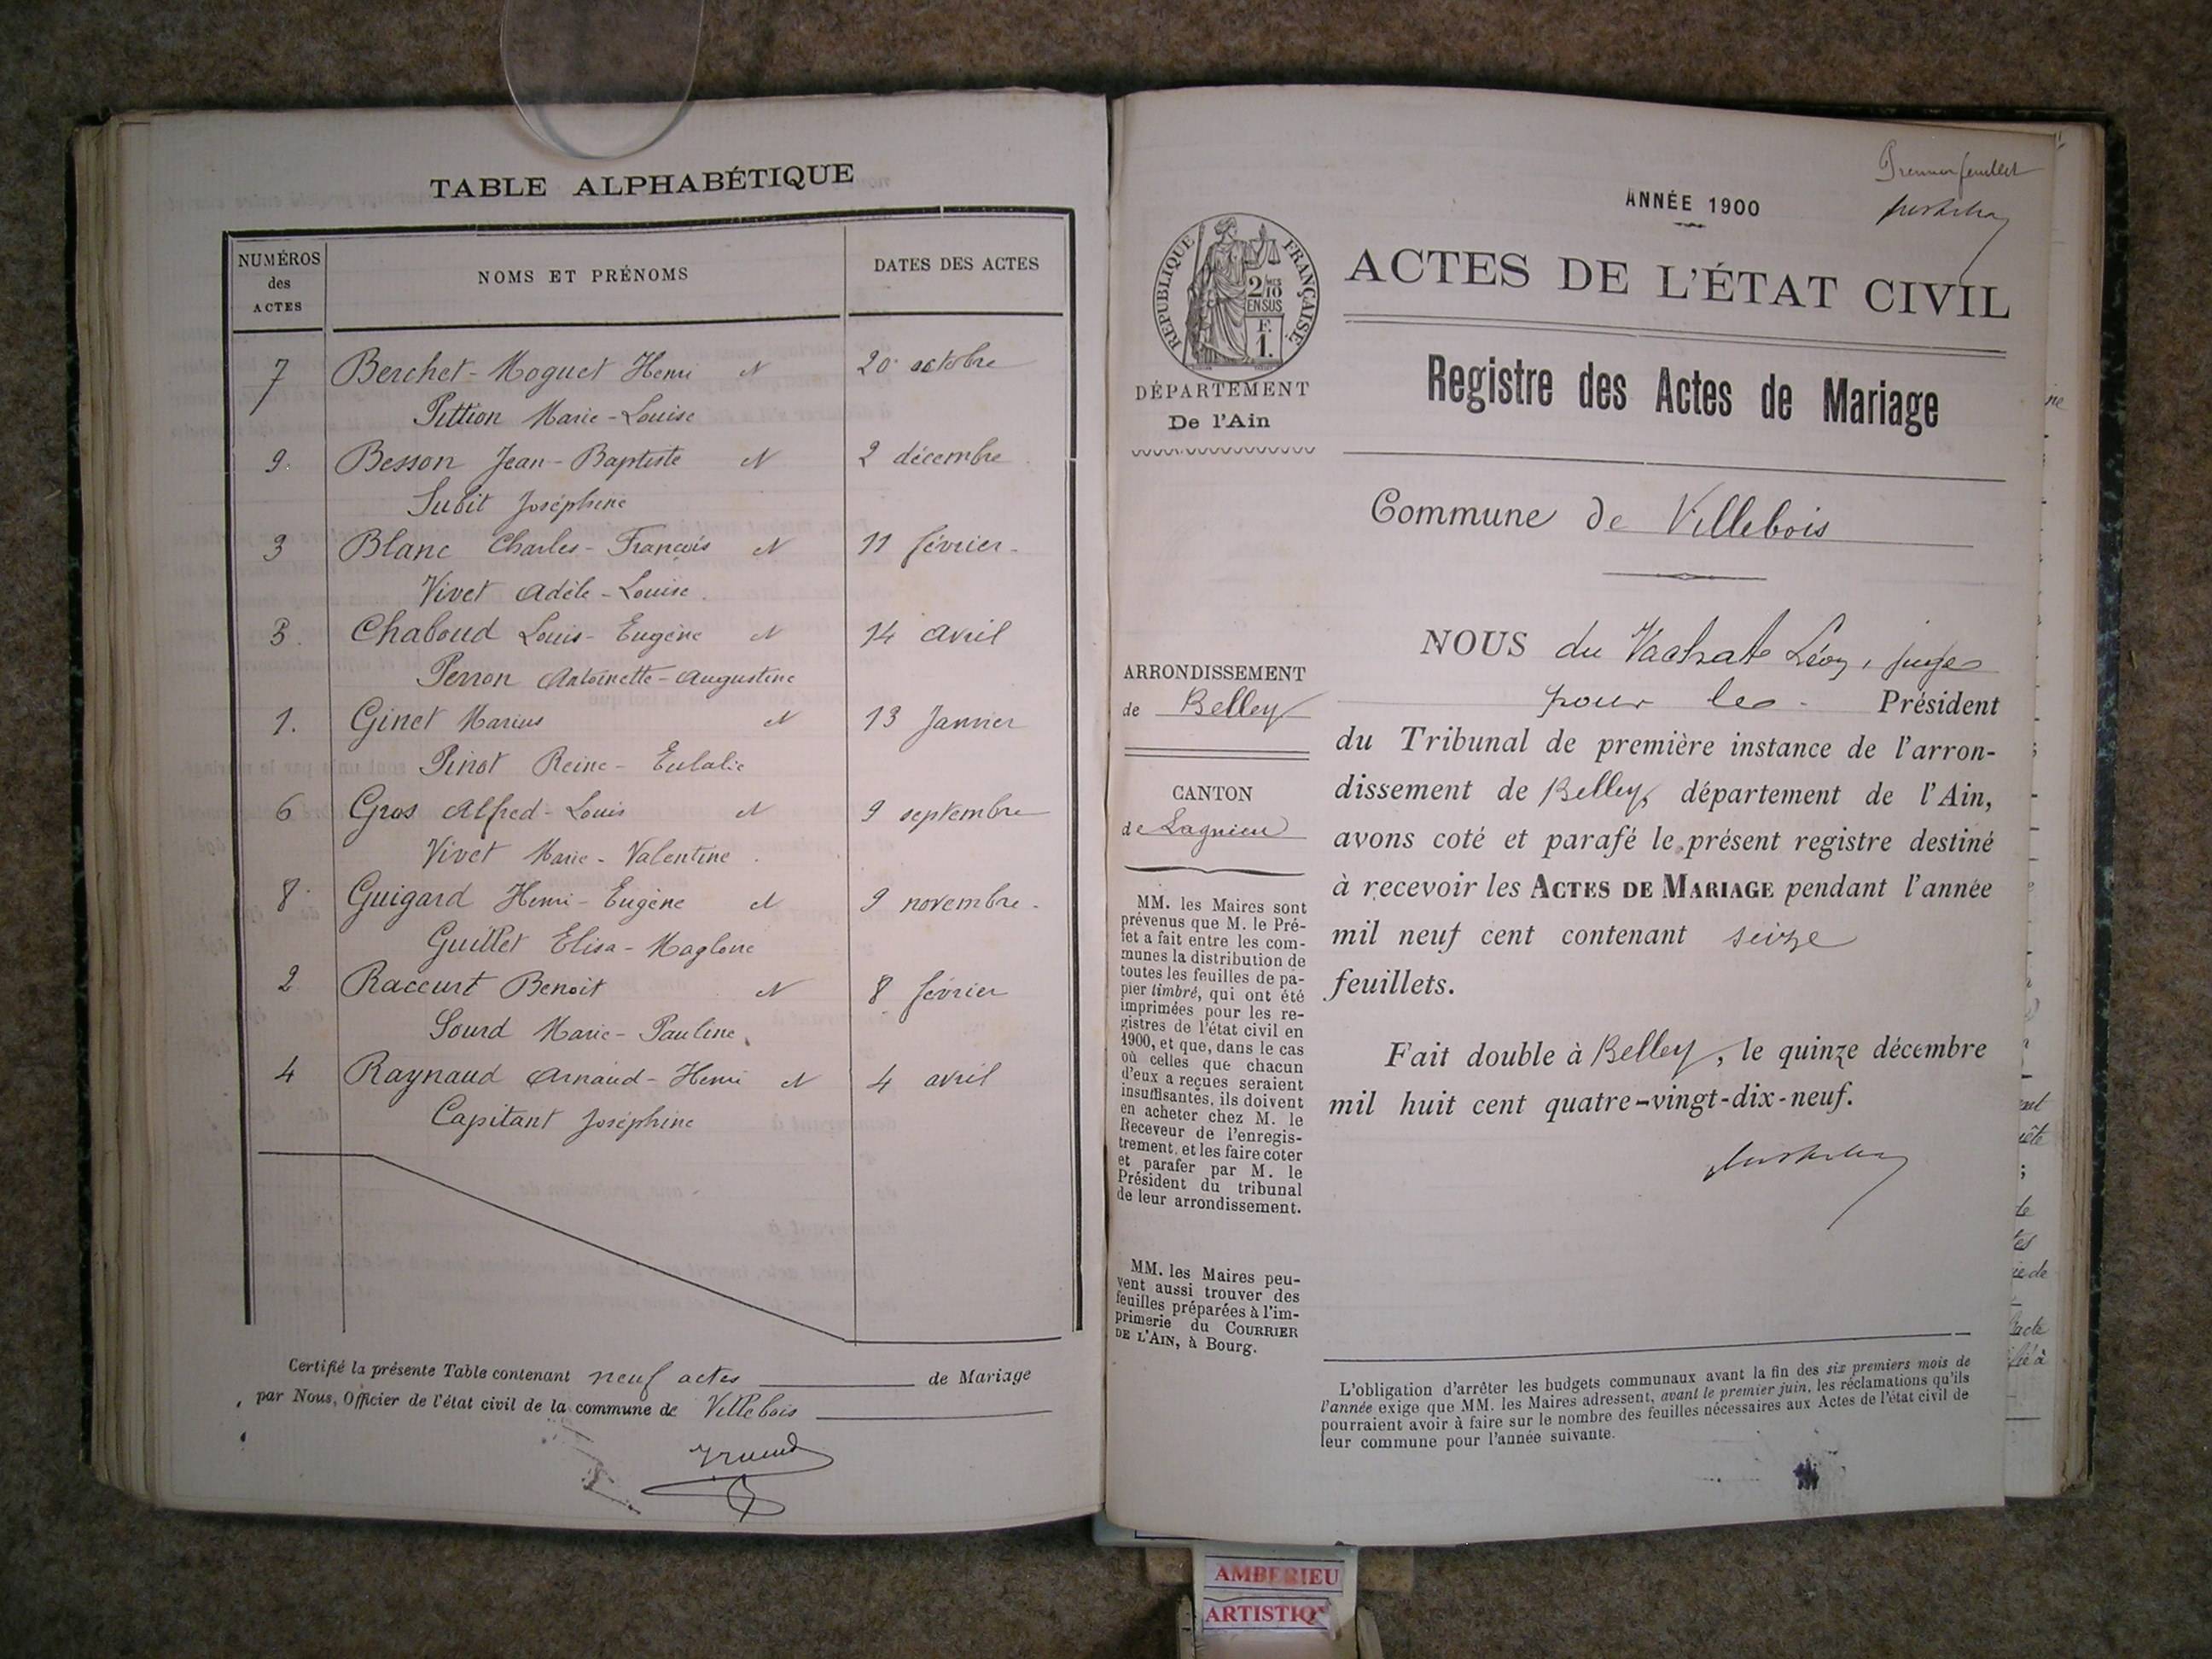 TABLE ALPHABÉTIQUE
NUMÉROS
des
ACTES
NOMS ET PRÉNOMS
DATES DES ACTES
7 Berchet-Moguet Henri N 20 octobre
Pittion Marie-Louise
9. Besson Jean-Baptiste N 2 décembre
Subit Joséphine
3 Blanc Charles-François N 11 février.
Vivet Adèle-Louise.
5. Chaboud Louis-Eugène N 14 avril
Perron Antoinette-Augustine
1. Ginet Marius N 13 Janvier
Pinot Reine-Eulalie
6 Gros Alfred-Louis N 9 septembre
Vivet Marie-Valentine.
8 Guigard Henri-Eugène N 9 novembre.
Guillet Elisa-Maglone
2 Raccurt Benoit N 8 février
Sourd Marie-Pauline.
4 Raynaud Arnaud-Henri N 4 avril
Capitant Joséphine
Certifié la présente Table contenant neuf actes de Mariage
par Nous, Officier de l'état civil de la commune de Villebois
Premier feuillet
ANNÉE 1900
RÉPUBLIQUE FRANÇAISE
2/10
EN SUS
F.
1.
DÉPARTEMENT
De l'Ain
ACTES DE L'ÉTAT CIVIL
Registre des Actes de Mariage
Commune de Villebois
ARRONDISSEMENT
de Belley
CANTON
de Lagnieu
MM. les Maires sont
prévenus que M. le Pré-
fet a fait entre les com-
munes la distribution de
toutes les feuilles de pa-
pier timbré, qui ont été
imprimées pour les re-
gistres de l'état civil en
1900, et que, dans le cas
où celles que chacun
d'eux a reçues seraient
insuffisantes, ils doivent
en acheter chez M. le
Receveur de l'enregis-
trement, et les faire coter
et parafer par M. le
Président du tribunal
de leur arrondissement.
MM. les Maires peu-
vent aussi trouver des
feuilles préparées à l'im-
primerie du COURRIER
DE L'AIN, à Bourg.
NOUS du Vachat Léon, juge
pour le Président
du Tribunal de première instance de l'arron-
dissement de Belley, département de l'Ain,
avons coté et parafé le présent registre destiné
à recevoir les ACTES DE MARIAGE pendant l'année
mil neuf cent contenant seize
feuillets.
Fait double à Belley, le quinze décembre
mil huit cent quatre-vingt-dix-neuf.
L'obligation d'arrêter les budgets communaux avant la fin des six premiers mois de
l'année exige que MM. les Maires adressent, avant le premier juin, les réclamations qu'ils
pourraient avoir à faire sur le nombre des feuilles nécessaires aux Actes de l'état civil de
leur commune pour l'année suivante.
AMBERIEU
ARTISTIQ